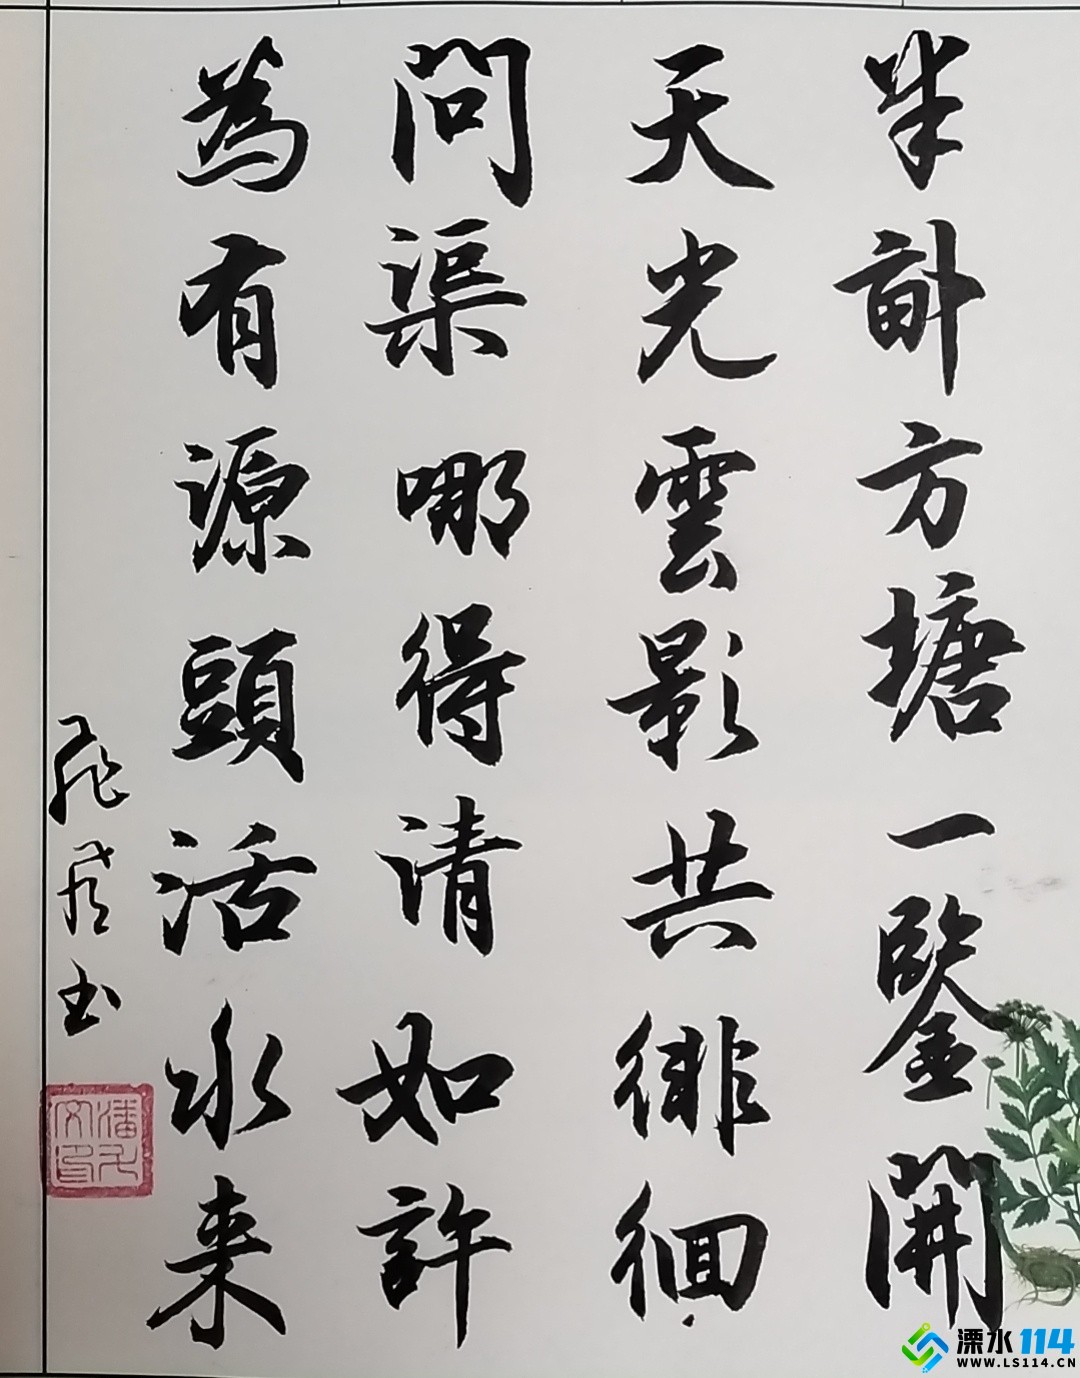 半畝方塘一鑒開
天光雲影共徘徊
問渠哪得清如許
為有源頭活水来
溧水114
WWW.LS114.CN